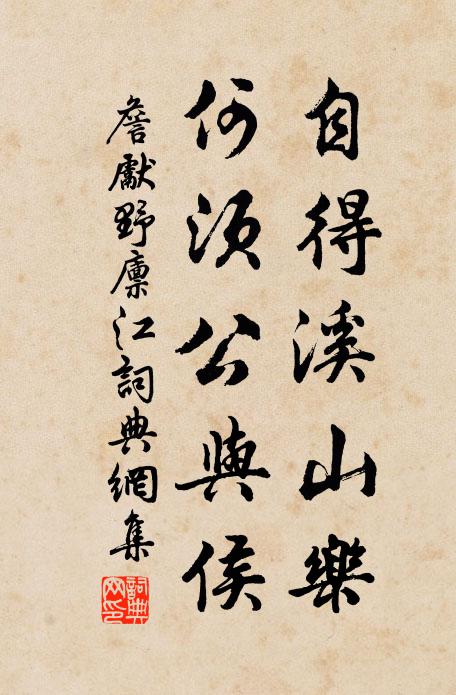 自得溪山樂
何須公與侯
詹獻野廩江詞典網集
詞典網印